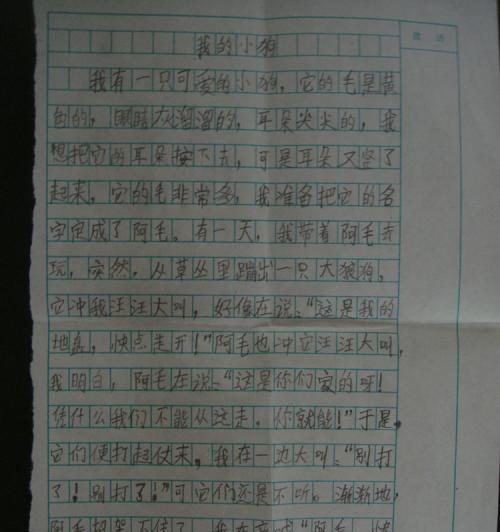 批语
我的小狗
我有一只可爱的小狗，它的毛是黄
色的，眼睛灰溜溜的，耳朵尖尖的，我
想把它的耳朵按下去，可是耳朵又竖了
起来，它的毛非常多，我准备把它的名
字定成了阿毛。有一天，我带着阿毛去
玩，突然，从草丛里蹦出一只大狼狗，
它冲我汪汪大叫，好像在说：“这是我的
地盘，快点走开！”阿毛也冲它汪汪大叫，
我明白，阿毛在说：“这是你们家的呀！
凭什么我们不能从这走，你就能！”于是，
它们便打起仗来，我在一边大叫：“别打
了！别打了！”可它们还是不听。渐渐地，
阿毛招架不住了，我在